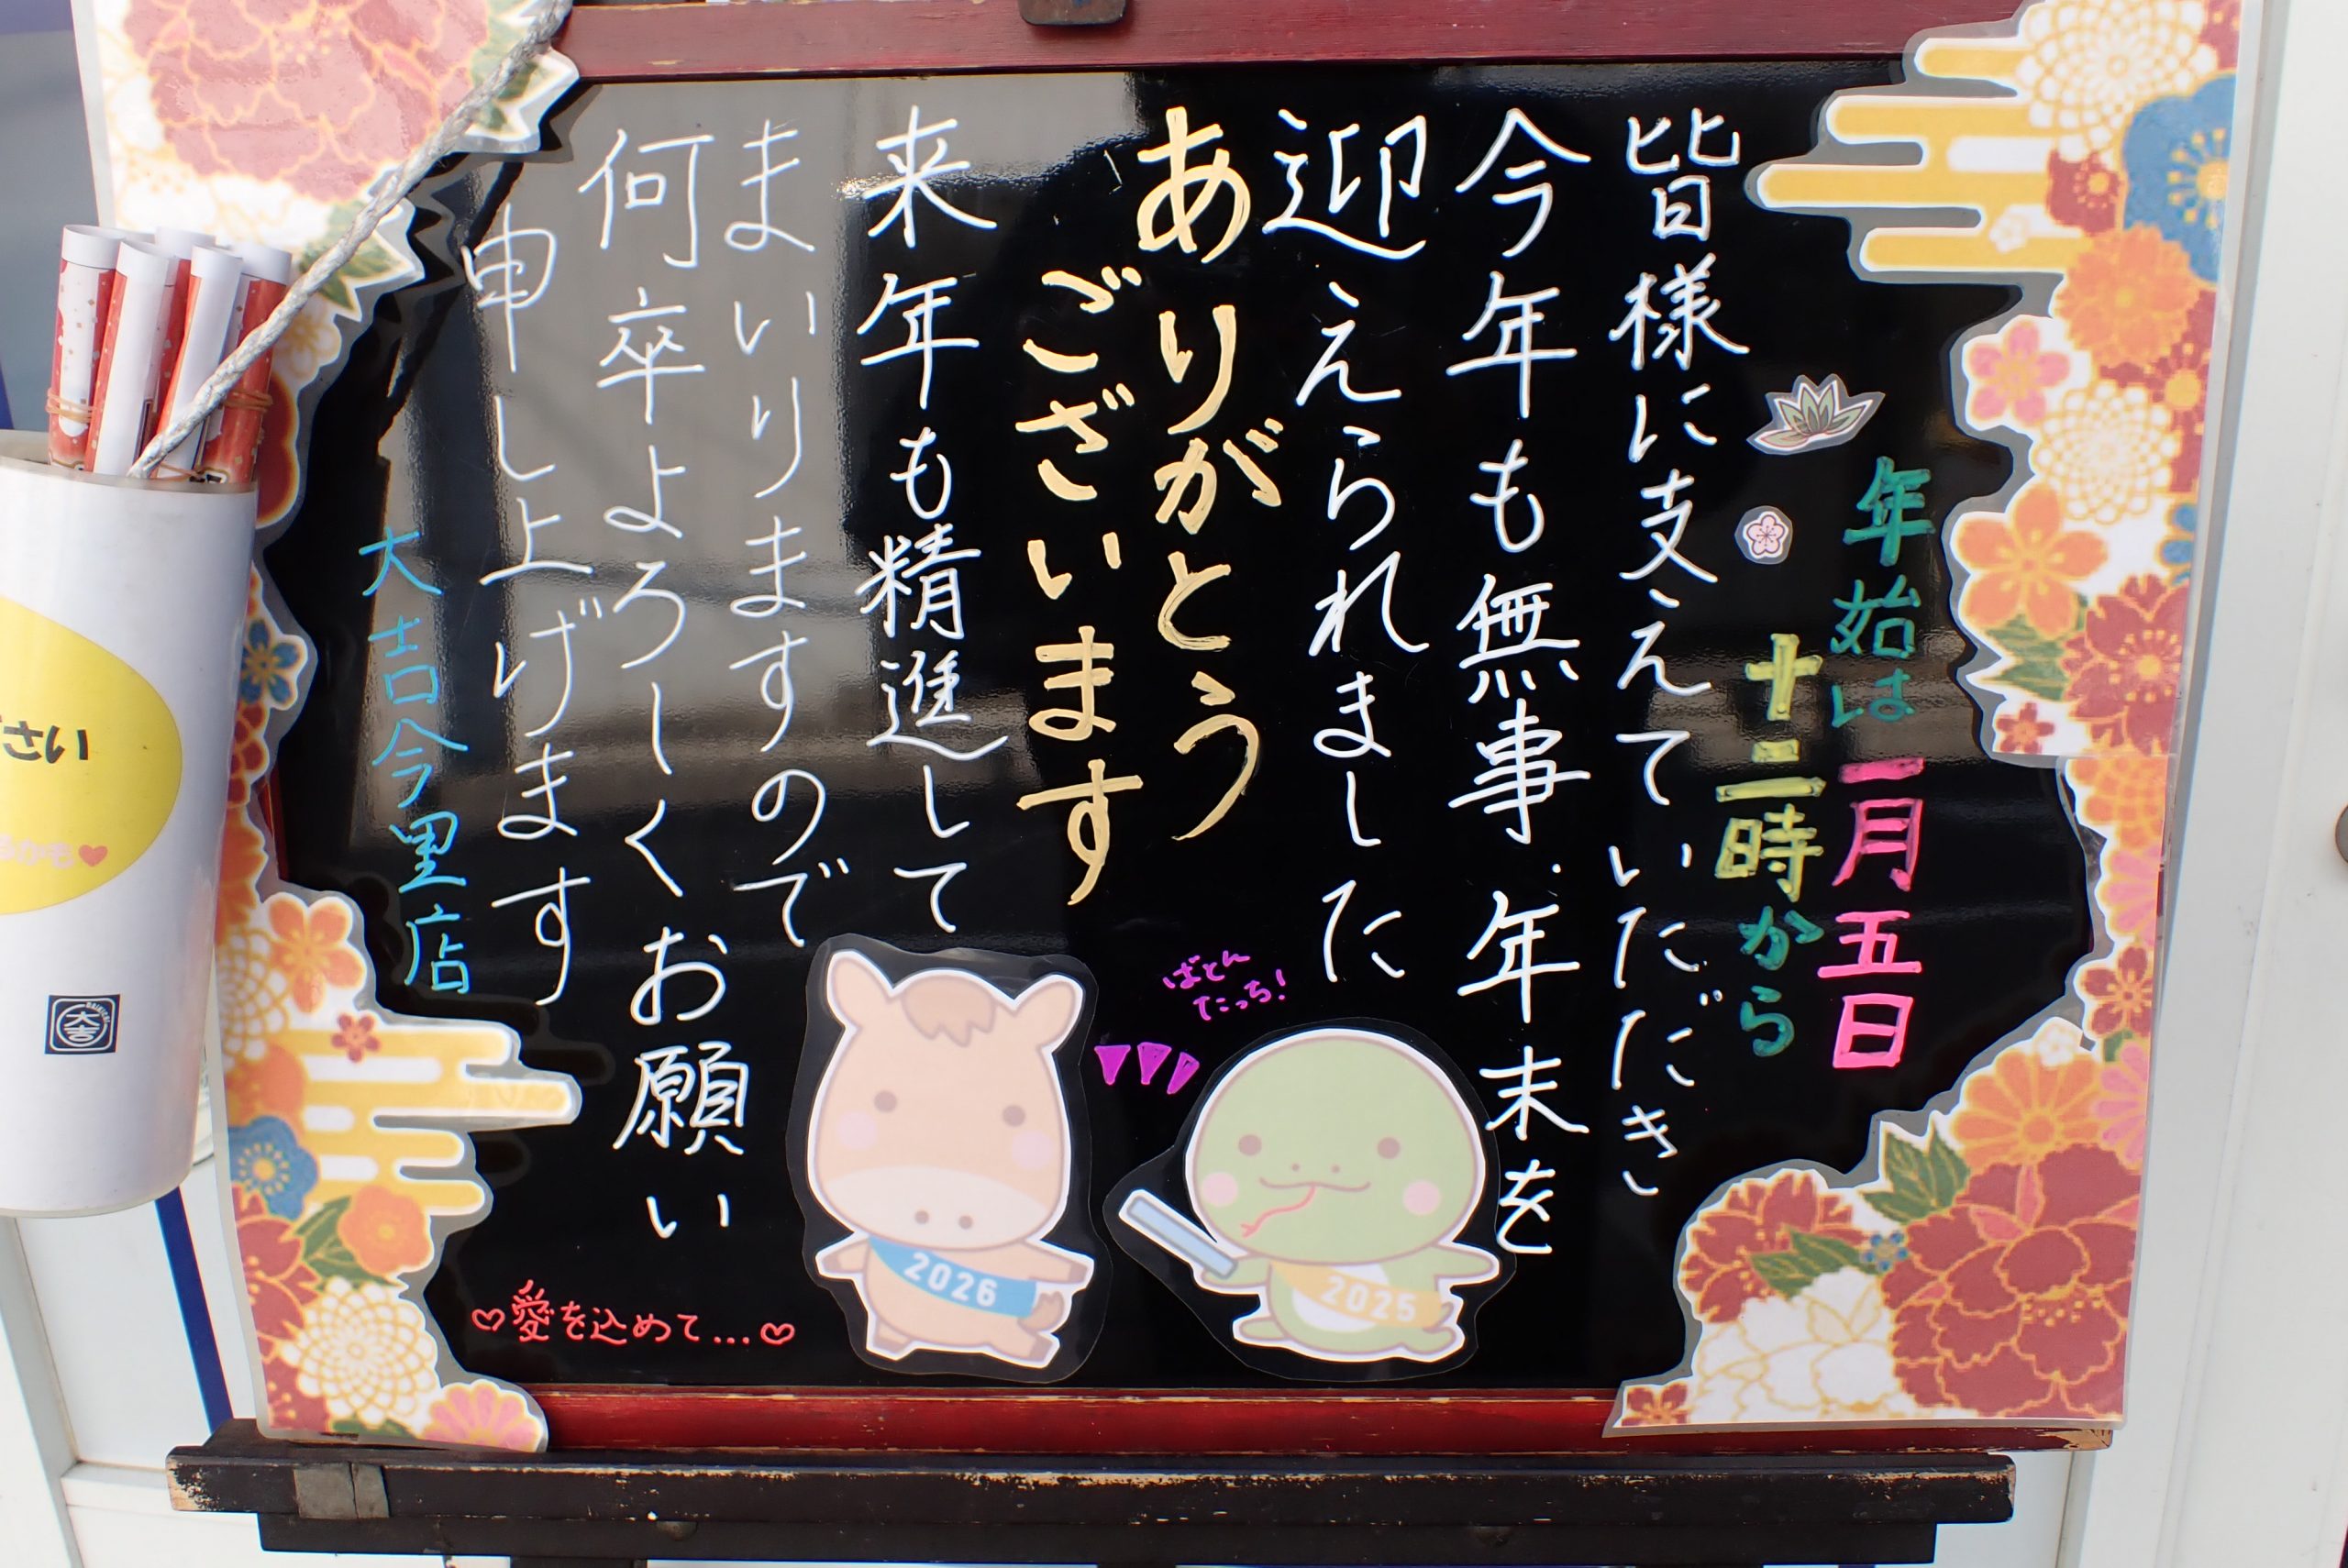 年始は一月五日
十二時から
皆様に支えていただき
今年も無事、年末を
迎えられました
ありがとう
ございます
来年も精進して
まいりますので
何卒よろしくお願い
申し上げます
大吉今里店
ばとん
たっち!
2026
2025
♡愛を込めて...♡
さい
かも♥
大吉